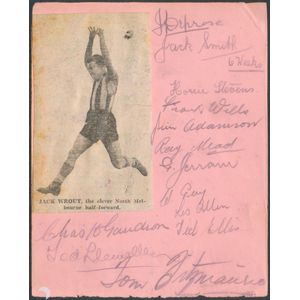 Jack Smith
6 Weeks
Horrie Stevens
Frank Wells
Jim Adamson
Ray Mead
G. Jerram
Guy
Les Allen
Ted Ellis
JACK WROUT, the clever North Mel-
bourne half-forward.
Chas
Ted Llewellyn
Tom Fitzmaurice